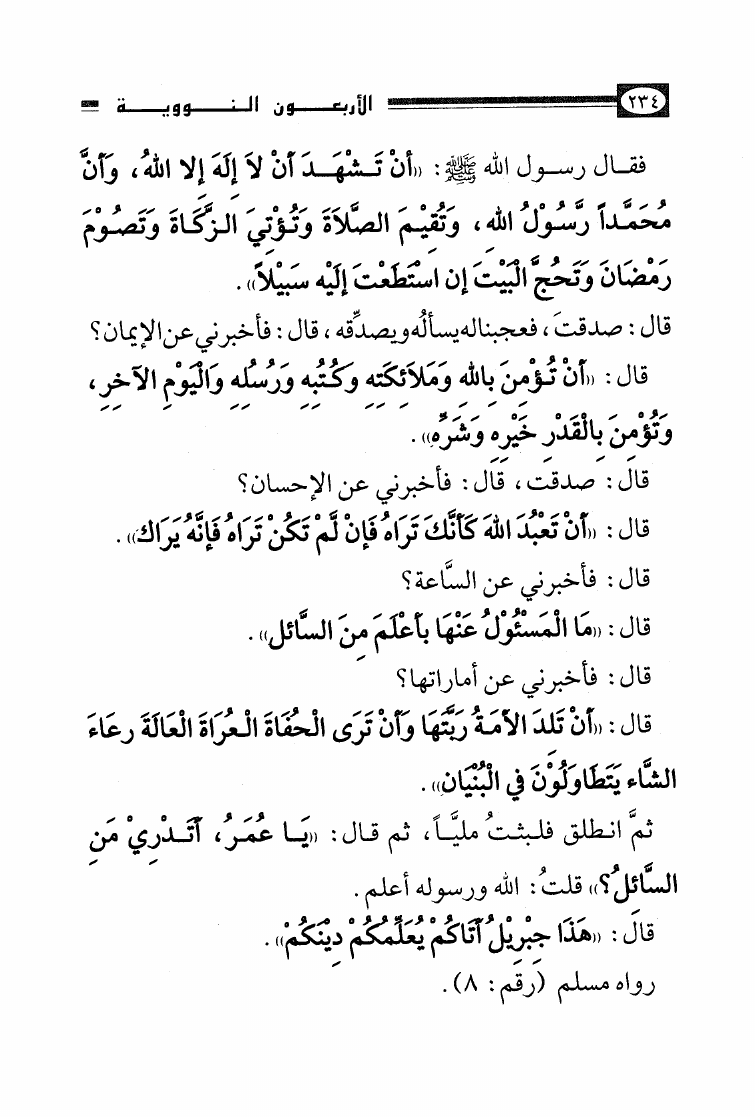 ٢٣٤ الأربعـــون النـــوويـــة
فقــال رســول الله ﷺ: «أَنْ تَــشْهَــدَ أَنْ لاَ إِلَهَ إِلا اللهُ، وَأَنَّ
مُحَمَّـداً رَّسُـوْلُ اللهِ، وَتُقِيْـمَ الصَّلاَةَ وَتُـؤْتِيَ الـزَّكَـاةَ وَتَصُـوْمَ
رَمْضَانَ وَتَحُجَّ الْبَيْتَ إِن اسْتَطَعْتَ إِلَيْهِ سَبِيْلاً».
قال: صدقتَ، فعجبنا له يسألُه ويصدِّقه، قال: فأخبرني عن الإيمان؟
قال: «أَنْ تُـؤْمِنَ بِاللهِ وَمَلاَئِكَتِهِ وَكُتُبِهِ وَرُسُلِهِ وَالْيَوْمِ الآخِرِ،
وَتُؤْمِنَ بِالْقَدْرِ خَيْرِهِ وَشَرِّهِ».
قال: صدقت، قال: فأخبرني عن الإحسان؟
قال: «أَنْ تَعْبُدَ اللهَ كَأَنَّكَ تَرَاهُ فَإِنْ لَّمْ تَكُنْ تَرَاهُ فَإِنَّهُ يَرَاكَ».
قال: فأخبرني عن السَّاعة؟
قال: «مَا الْمَسْئُوْلُ عَنْهَا بِأَعْلَمَ مِنَ السَّائِلِ».
قال: فأخبرني عن أماراتها؟
قال: «أَنْ تَلِدَ الأَمَـةُ رَبَّتَهَا وَأَنْ تَرَى الْحُفَاةَ الْعُرَاةَ الْعَالَةَ رِعَاءَ
الشَّاءِ يَتَطَاوَلُوْنَ فِي الْبُنْيَانِ».
ثمَّ انـطلق فلـبثـتُ مليَّـاً، ثم قـال: «يَــا عُمَـرُ، أَتَــدْرِيْ مَنِ
السَّائِلُ؟» قلتُ: الله ورسوله أعلم.
قال: «هَذَا جِبْرِيْلُ أَتَاكُمْ يُعَلِّمُكُمْ دِيْنَكُمْ».
رواه مسلم (رقم: ٨).